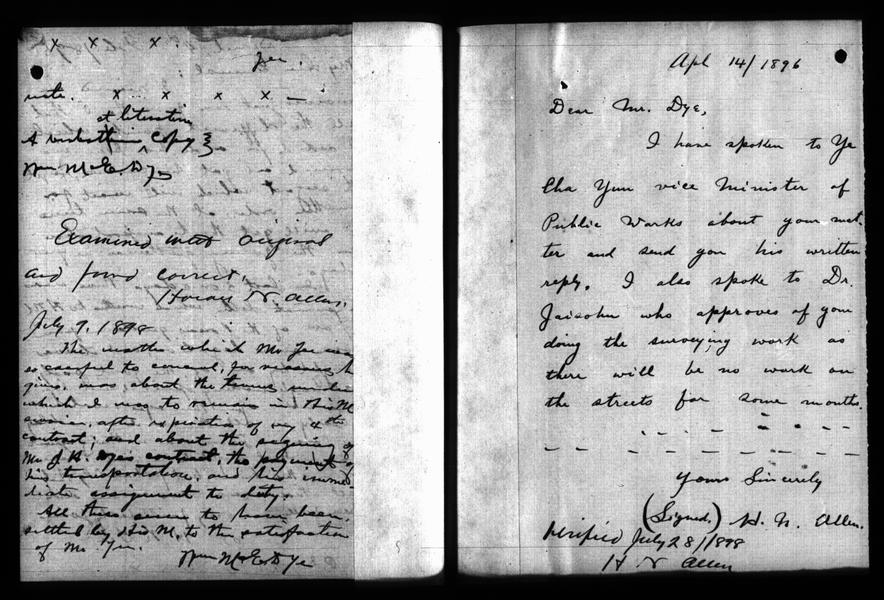 x x x .
Yer.
note. x x x x —
et literatim
A verbatim ^ Copy }
Wm McE. Dye
Examined with original
and found correct.
Horace N. Allen.
July 9. 1898
The matter which Mr Yer was
so careful to conceal, for reasons he
gives, was about the terms under
which I was to remain in His M.
service, after expiration of my 4th
contract; and about the signing of
Mr J. H. Dyes contract, the payment of
his transportation, and his immed
iate assignment to duty.
All these seem to have been
settled by His M. to the satisfaction
of Mr. Yer.
Wm McE. Dye
Apl 14/1896
Dear Mr. Dye,
I have spoken to Ye
Cha Yun vice Minister of
Public Works about your mat-
ter and send you his written
reply. I also spoke to Dr.
Jaisohn who approves of your
doing the surveying work as
there will be no work on
the streets for some months.
Yours Sincerely
(Signed.) H. N. Allen.
Verified July 28/1898
H N Allen